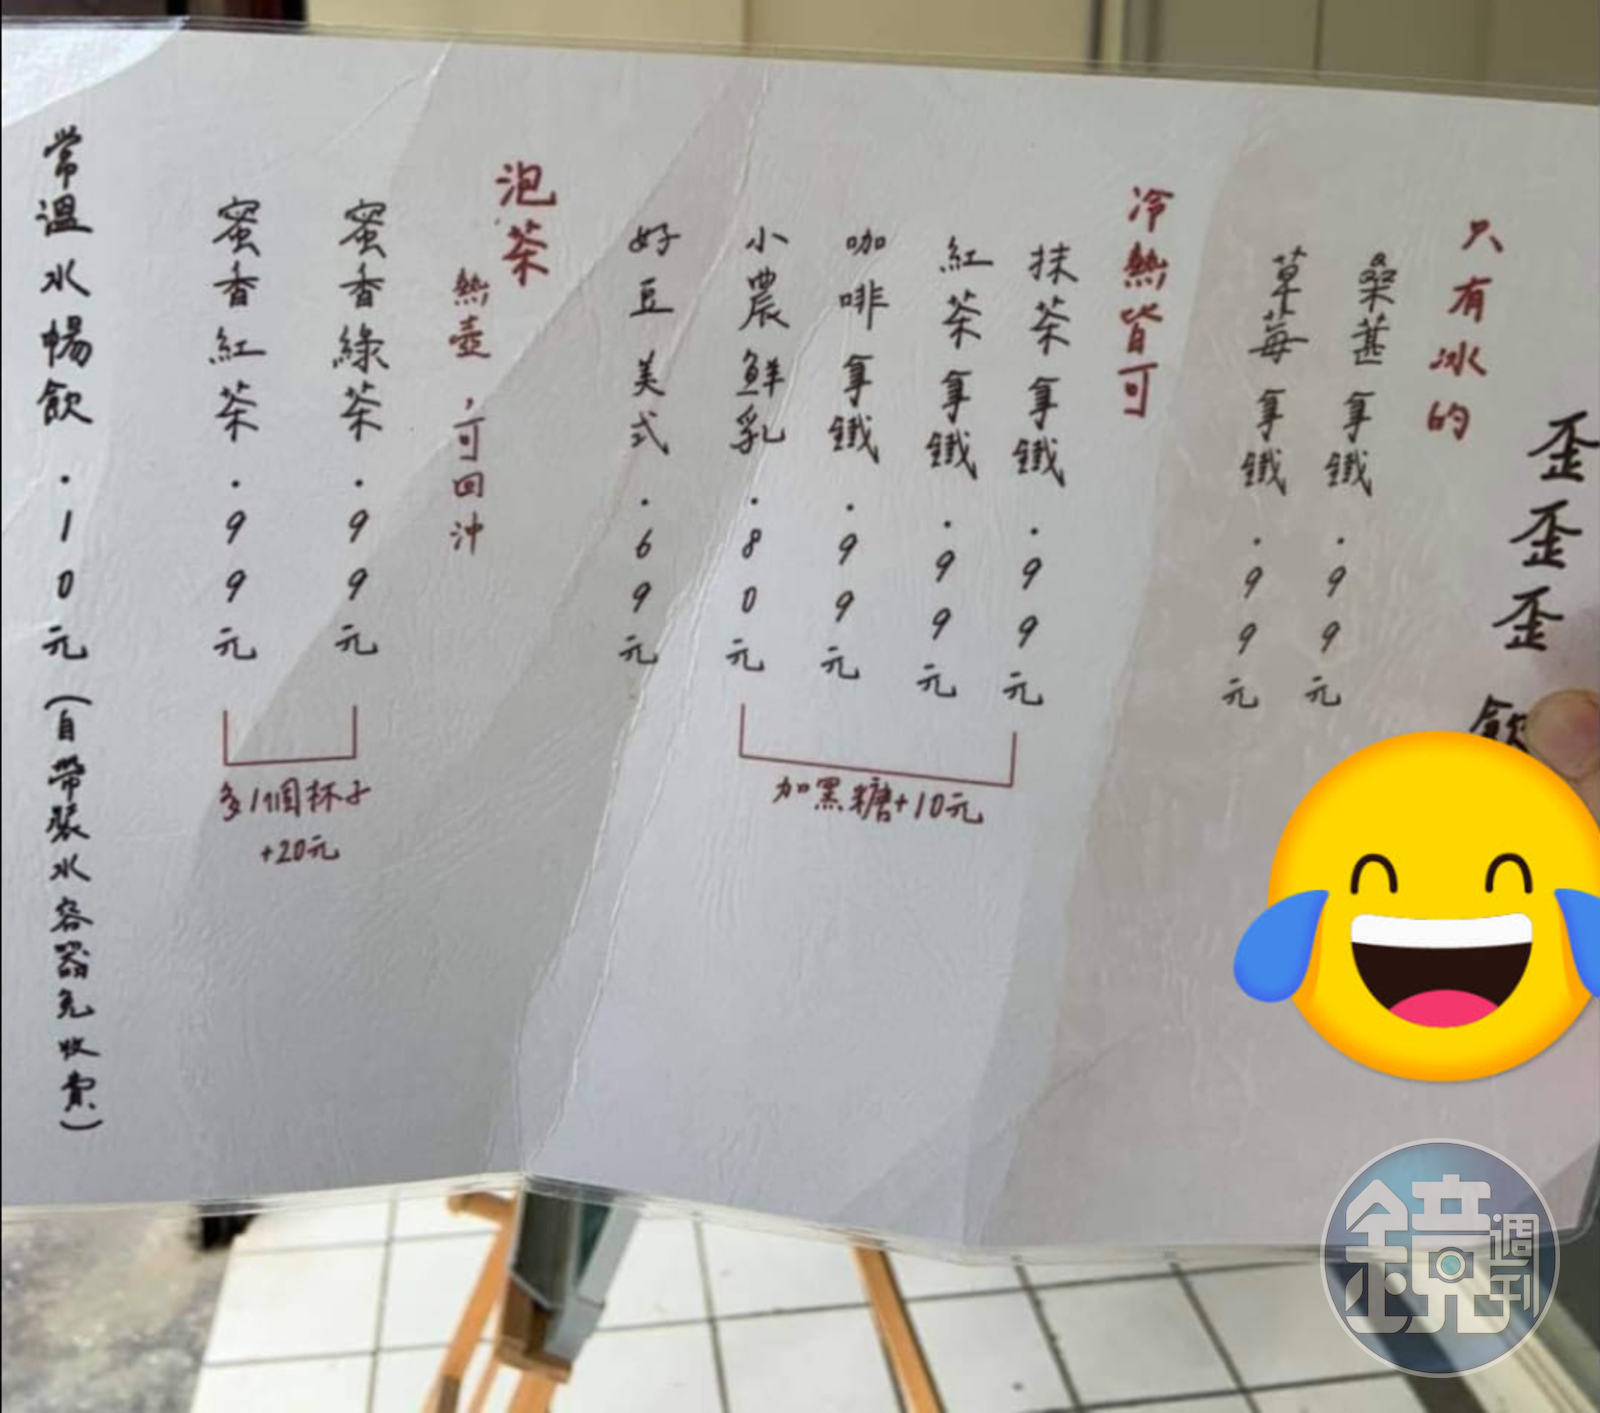 歪歪歪飲
只有冰的
桑葚拿鐵．99元
草莓拿鐵．99元
冷熱皆可
抹茶拿鐵．99元
紅茶拿鐵．99元
咖啡拿鐵．99元
小農鮮乳．80元
加黑糖+10元
好豆美式．69元
泡茶
熱壺，可回沖
蜜香綠茶．99元
蜜香紅茶．99元
多1個杯子
+20元
常溫水暢飲．10元（自帶裝水容器免收費）
鏡週刊